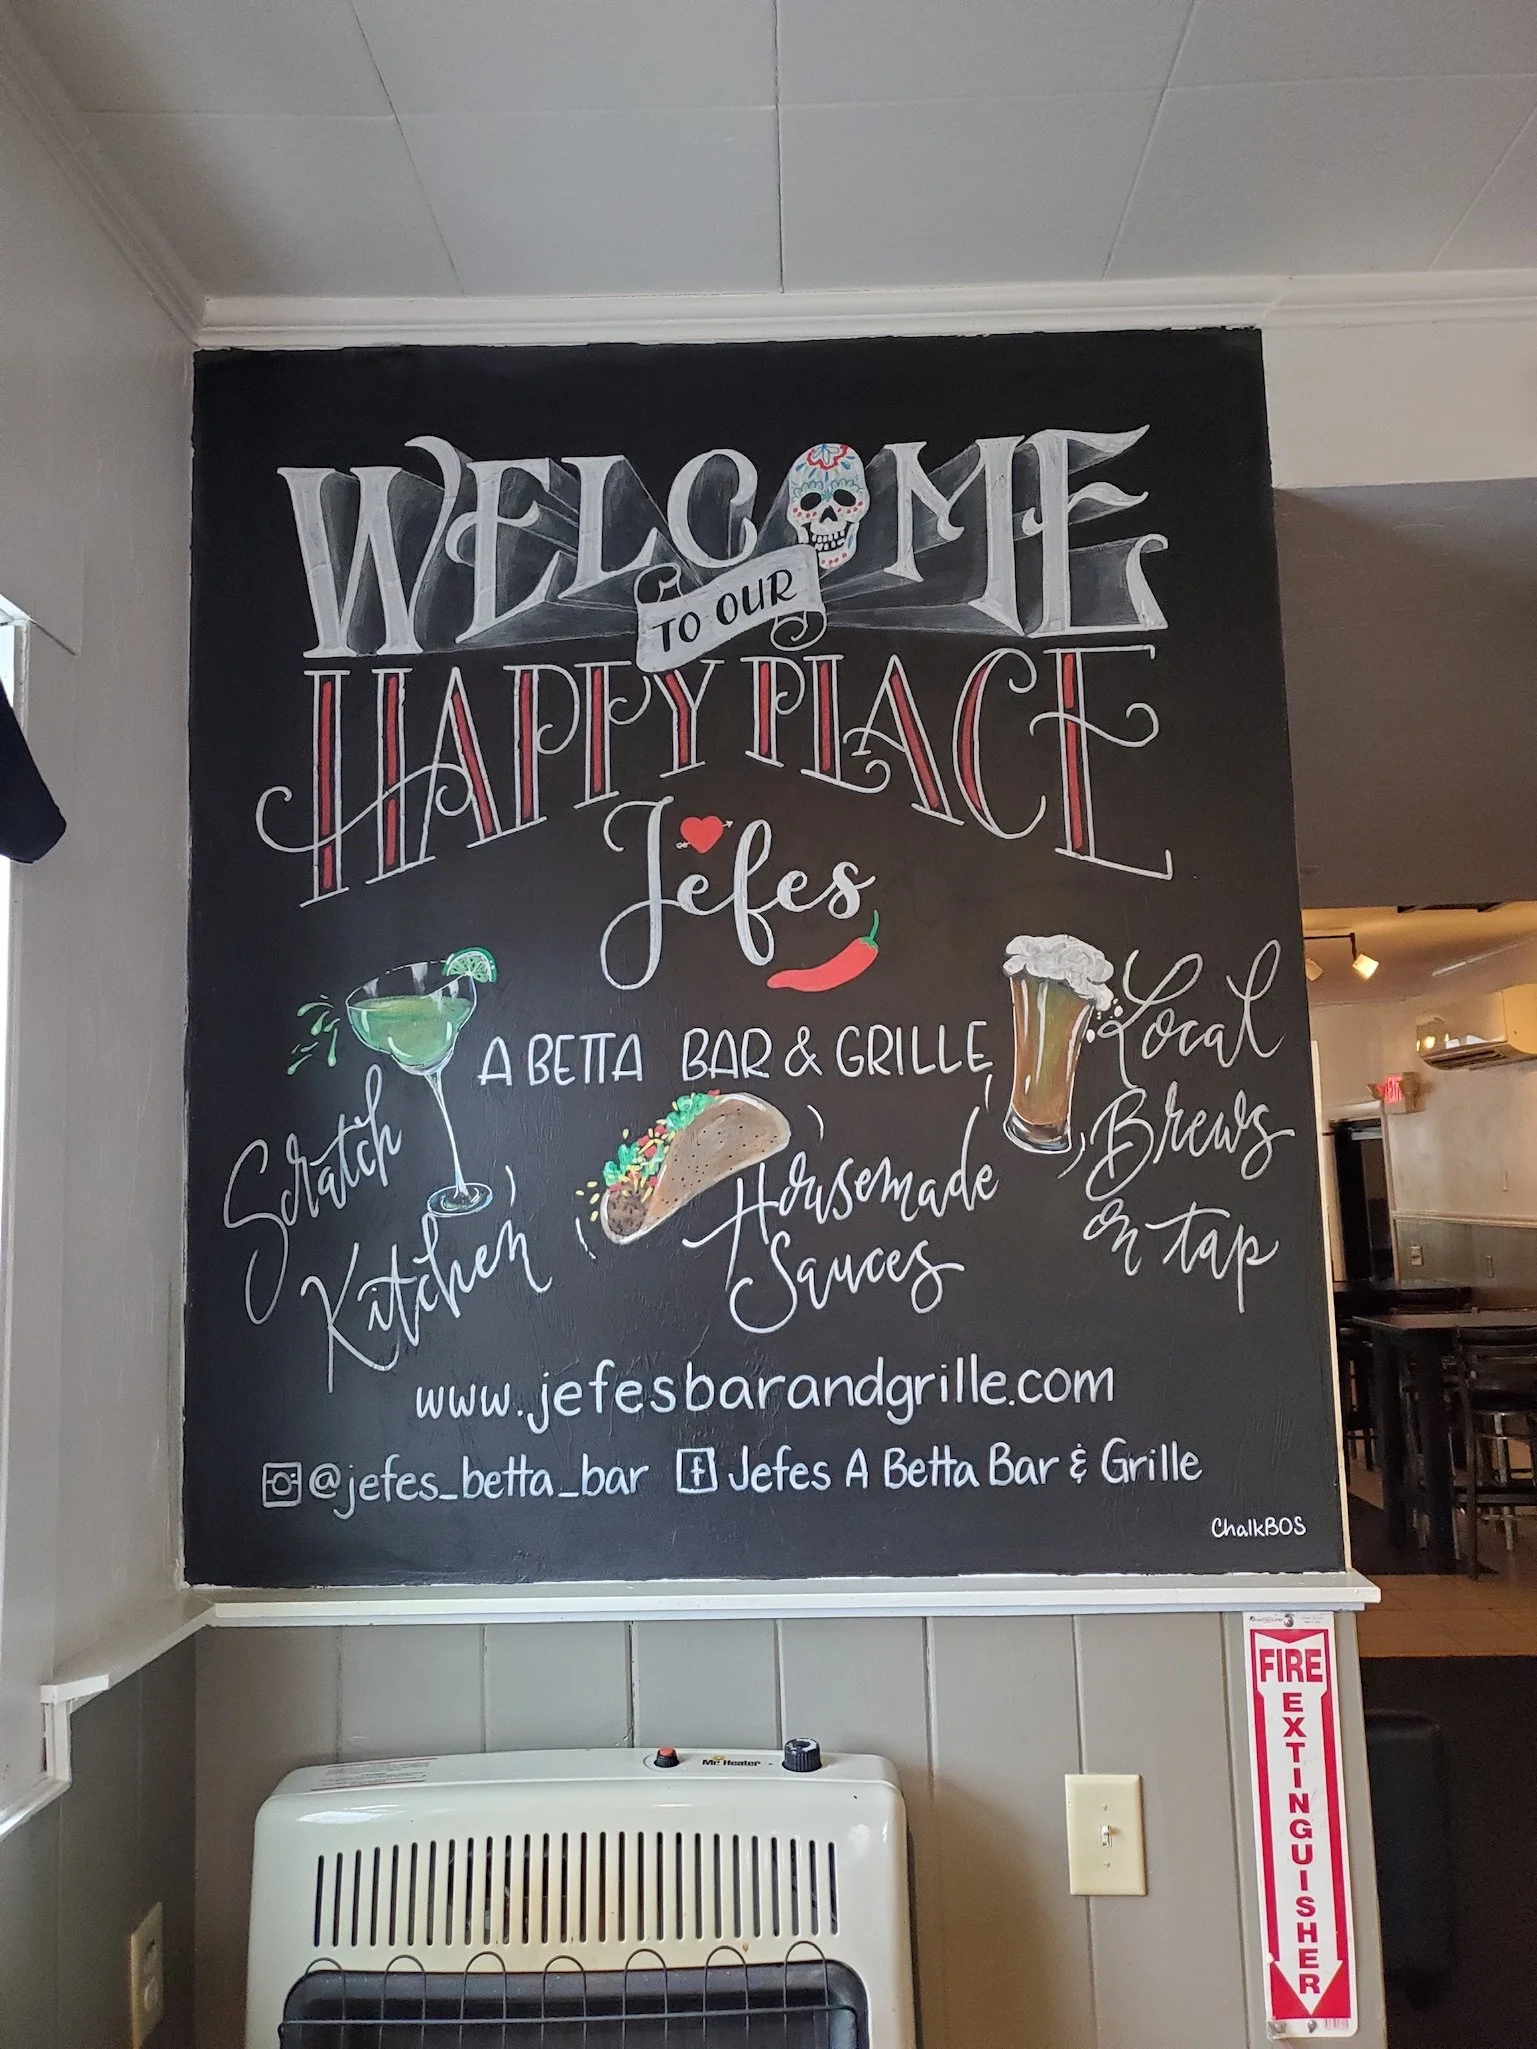 WELCOME
TO OUR
HAPPY PLACE
Jefes
A BETTA BAR & GRILLE
Scratch
Kitchen
Housemade
Sauces
Local
Brews
on tap
www.jefesbarandgrille.com
@jefes_betta_bar
Jefes A Betta Bar & Grille
ChalkBOS
EXIT
Mr Heater
FIRE
EXTINGUISHER